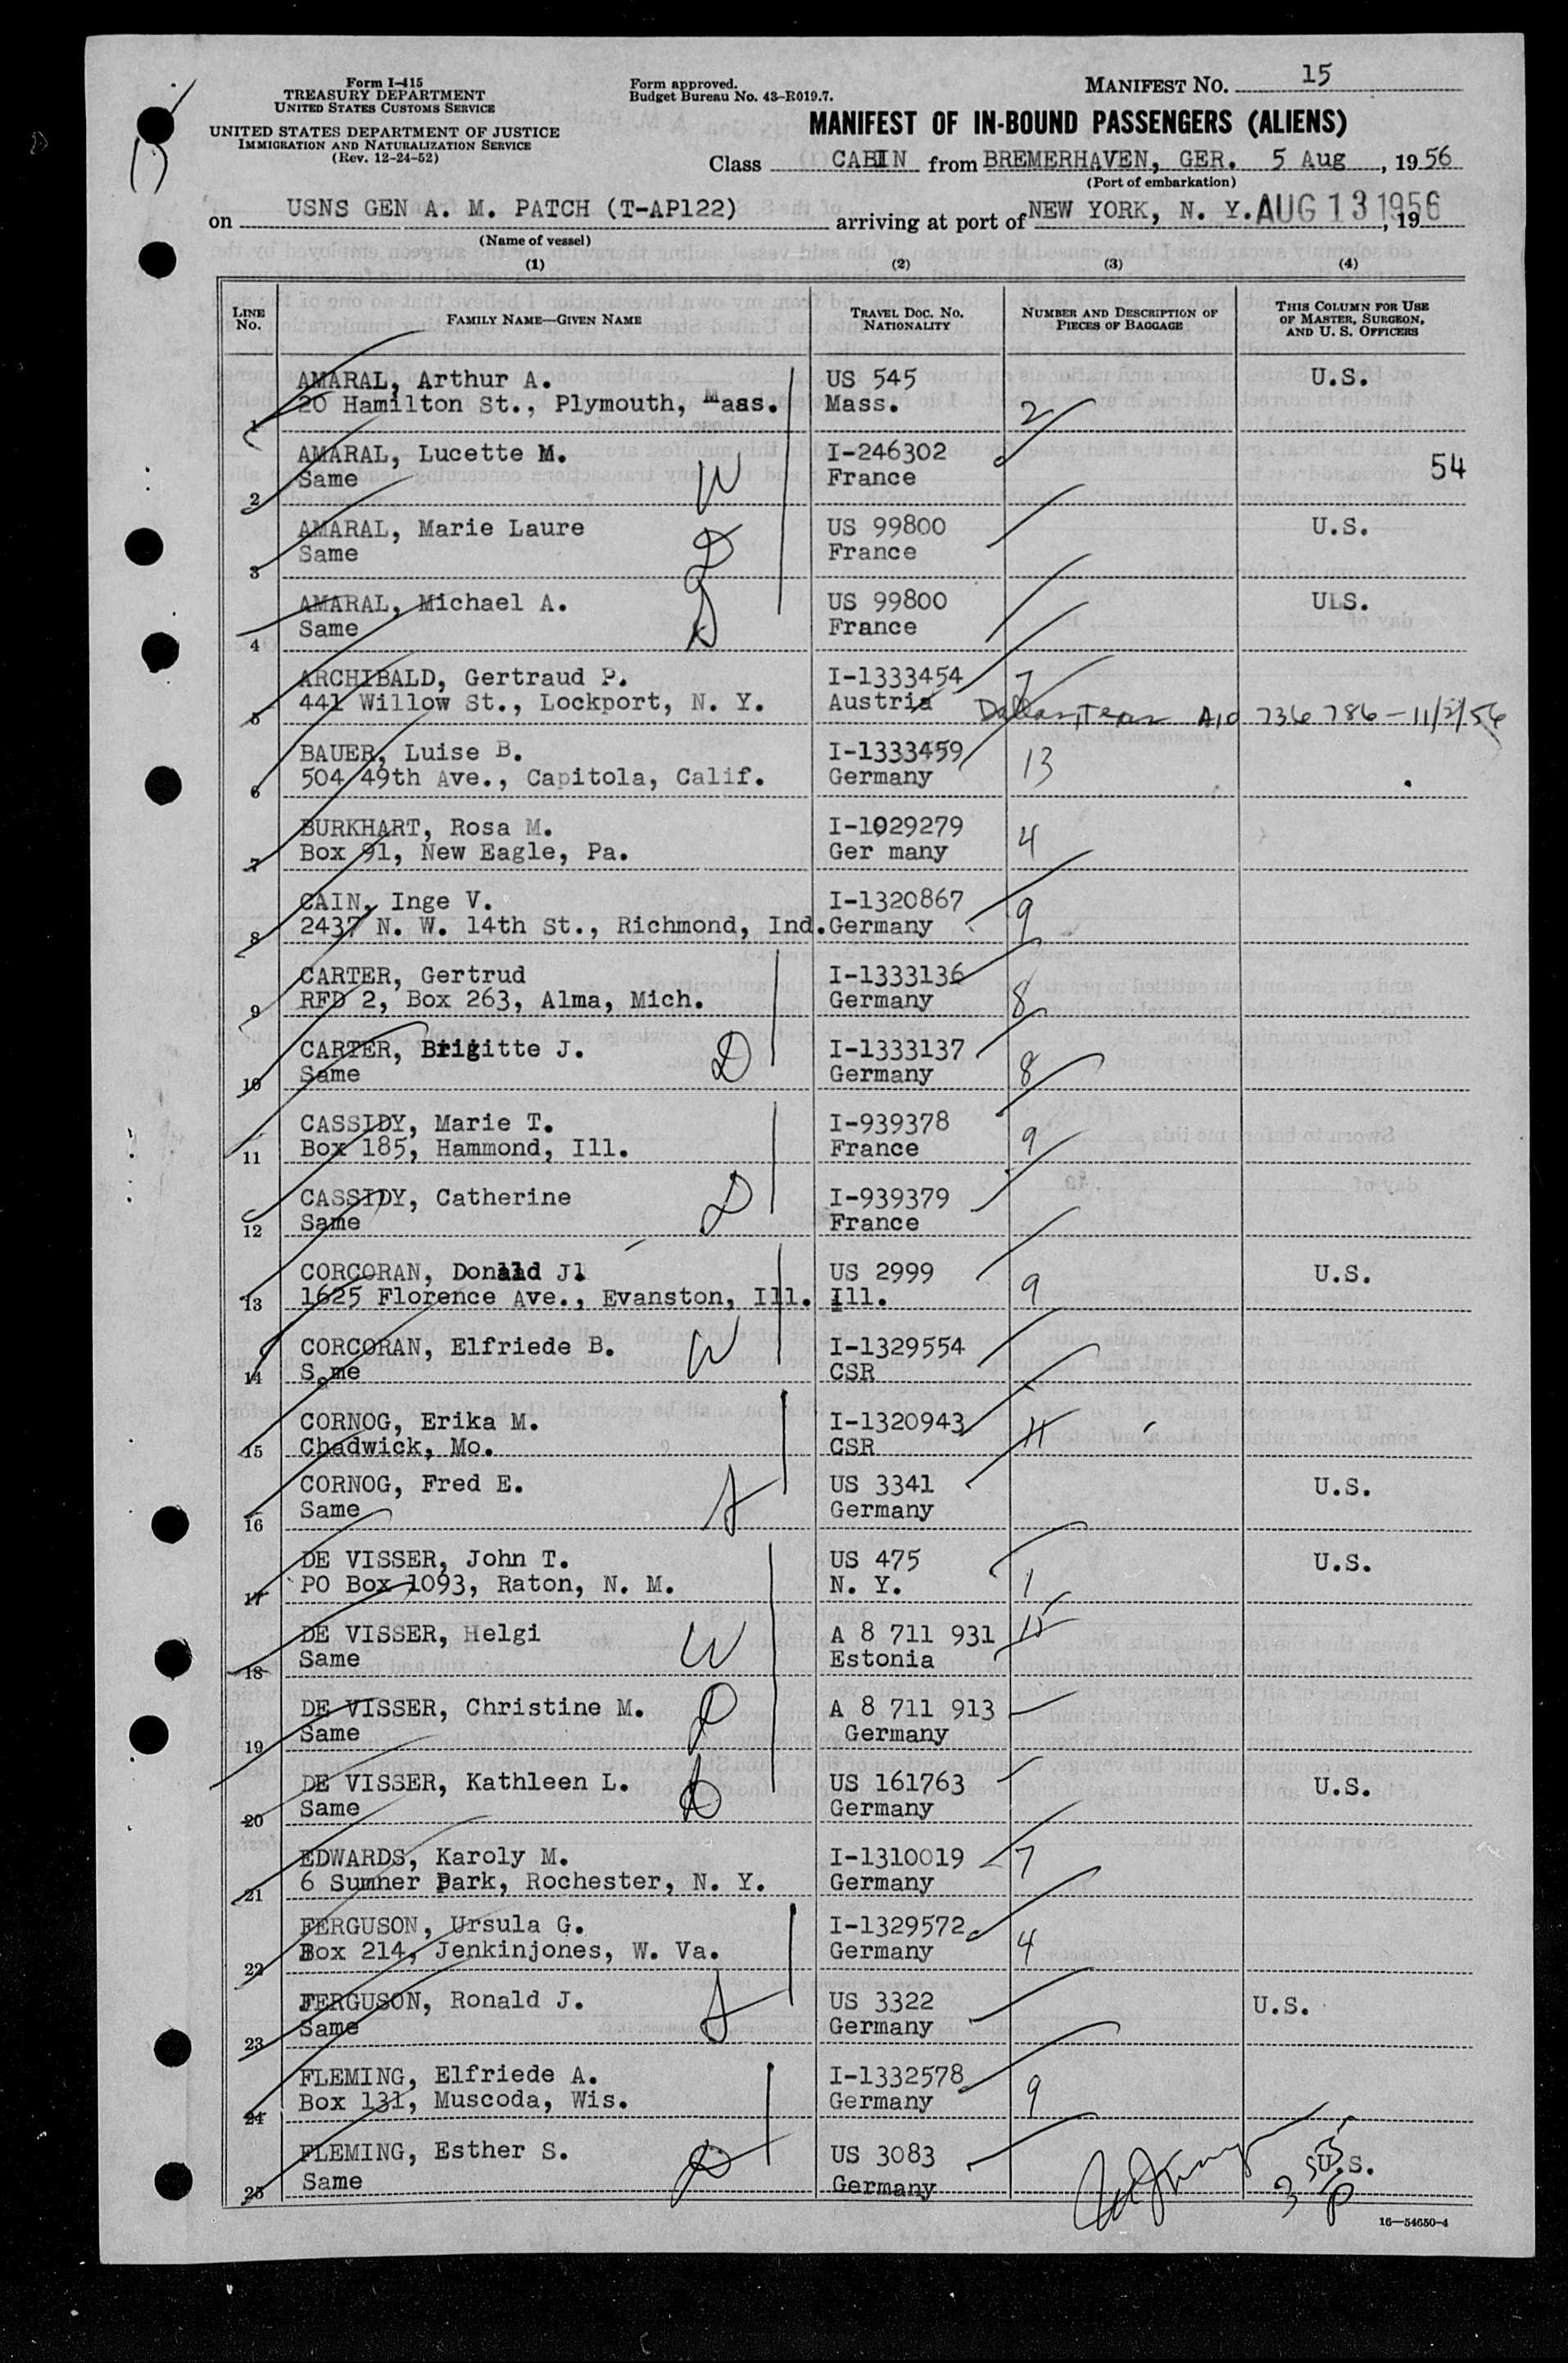 Form I-415
TREASURY DEPARTMENT
UNITED STATES CUSTOMS SERVICE
UNITED STATES DEPARTMENT OF JUSTICE
IMMIGRATION AND NATURALIZATION SERVICE
(Rev. 12-24-52)
Form approved.
Budget Bureau No. 43-R019.7.
MANIFEST NO. 15
MANIFEST OF IN-BOUND PASSENGERS (ALIENS)
Class CABIN from BREMERHAVEN, GER. 5 Aug, 1956
(Port of embarkation)
on USNS GEN A. M. PATCH (T-AP122) arriving at port of NEW YORK, N. Y. AUG 13 1956, 19
(Name of vessel)
(1) (2) (3) (4)
LINE NO. FAMILY NAME—GIVEN NAME TRAVEL DOC. NO. NATIONALITY NUMBER AND DESCRIPTION OF PIECES OF BAGGAGE THIS COLUMN FOR USE OF MASTER, SURGEON, AND U. S. OFFICERS
AMARAL, Arthur A. US 545 U.S.
1 20 Hamilton St., Plymouth, Mass. Mass. 2
AMARAL, Lucette M. I-246302
2 Same W France 54
AMARAL, Marie Laure US 99800 U.S.
3 Same D France
AMARAL, Michael A. US 99800 ULS.
4 Same S France
ARCHIBALD, Gertraud P. I-1333454 7
5 441 Willow St., Lockport, N. Y. Austria Dallas, Texas A10 736 786 - 11/2/56
BAUER, Luise B. I-1333459
6 504 49th Ave., Capitola, Calif. Germany 13
BURKHART, Rosa M. I-1029279
7 Box 91, New Eagle, Pa. Ger many 4
CAIN, Inge V. I-1320867
8 2437 N. W. 14th St., Richmond, Ind. Germany 9
CARTER, Gertrud I-1333136
9 RFD 2, Box 263, Alma, Mich. Germany 8
CARTER, Brigitte J. I-1333137
10 Same D Germany 8
CASSIDY, Marie T. I-939378
11 Box 185, Hammond, Ill. France 9
CASSIDY, Catherine I-939379
12 Same D France
CORCORAN, Donald Jl US 2999 U.S.
13 1625 Florence Ave., Evanston, Ill. Ill. 9
CORCORAN, Elfriede B. W I-1329554
14 Same CSR
CORNOG, Erika M. I-1320943
15 Chadwick, Mo. CSR 11
CORNOG, Fred E. US 3341 U.S.
16 Same S Germany
DE VISSER, John T. US 475 U.S.
17 PO Box 1093, Raton, N. M. N. Y. 1
DE VISSER, Helgi A 8 711 931 15
18 Same W Estonia
DE VISSER, Christine M. A 8 711 913
19 Same D Germany
DE VISSER, Kathleen L. US 161763 U.S.
20 Same D Germany
EDWARDS, Karoly M. I-1310019 7
21 6 Sumner Park, Rochester, N. Y. Germany
FERGUSON, Ursula G. I-1329572
22 Box 214, Jenkinjones, W. Va. Germany 4
FERGUSON, Ronald J. US 3322 U.S.
23 Same S Germany
FLEMING, Elfriede A. I-1332578
24 Box 131, Muscoda, Wis. Germany 9
FLEMING, Esther S. US 3083 U.S.
25 Same D Germany
16—54650-4